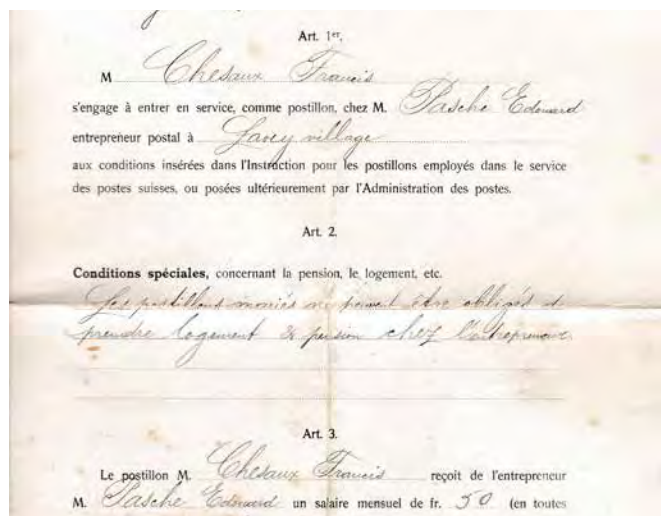 Art. 1er.
M Chesaux Francis
s'engage à entrer en service, comme postillon, chez M. Pasche Edouard
entrepreneur postal à Lavey village
aux conditions insérées dans l'Instruction pour les postillons employés dans le service
des postes suisses, ou posées ultérieurement par l'Administration des postes.
Art. 2.
Conditions spéciales, concernant la pension, le logement, etc.
Les postillons mariés ne peuvent être obligés de
prendre logement & pension chez l'entrepreneur.
Art. 3.
Le postillon M. Chesaux Francis reçoit de l'entrepreneur
M. Pasche Edouard un salaire mensuel de fr. 50 (en toutes